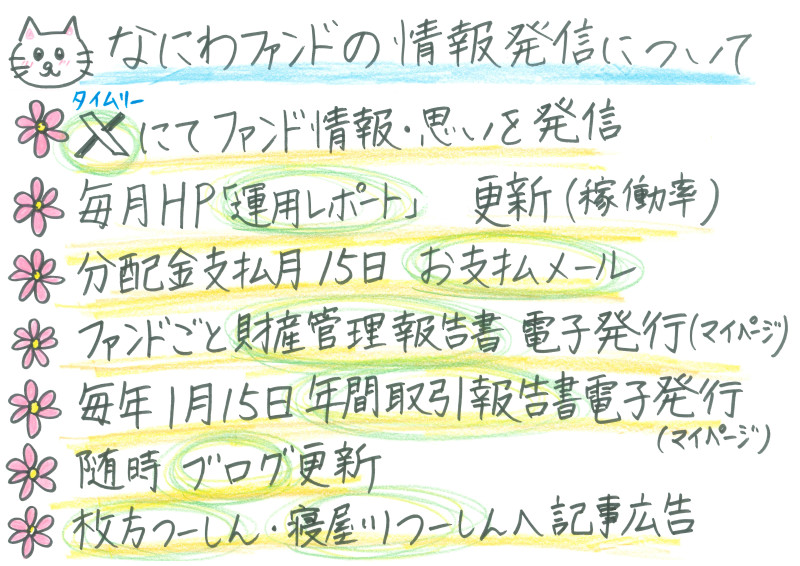 なにわファンドの情報発信について
タイムリー
Xにてファンド情報・思いを発信
毎月HP「運用レポート」 更新(稼働率)
分配金支払月15日 お支払メール
ファンドごと財産管理報告書 電子発行(マイページ)
毎年1月15日年間取引報告書電子発行
(マイページ)
随時 ブログ更新
枚方つーしん・寝屋川つーしんへ記事広告